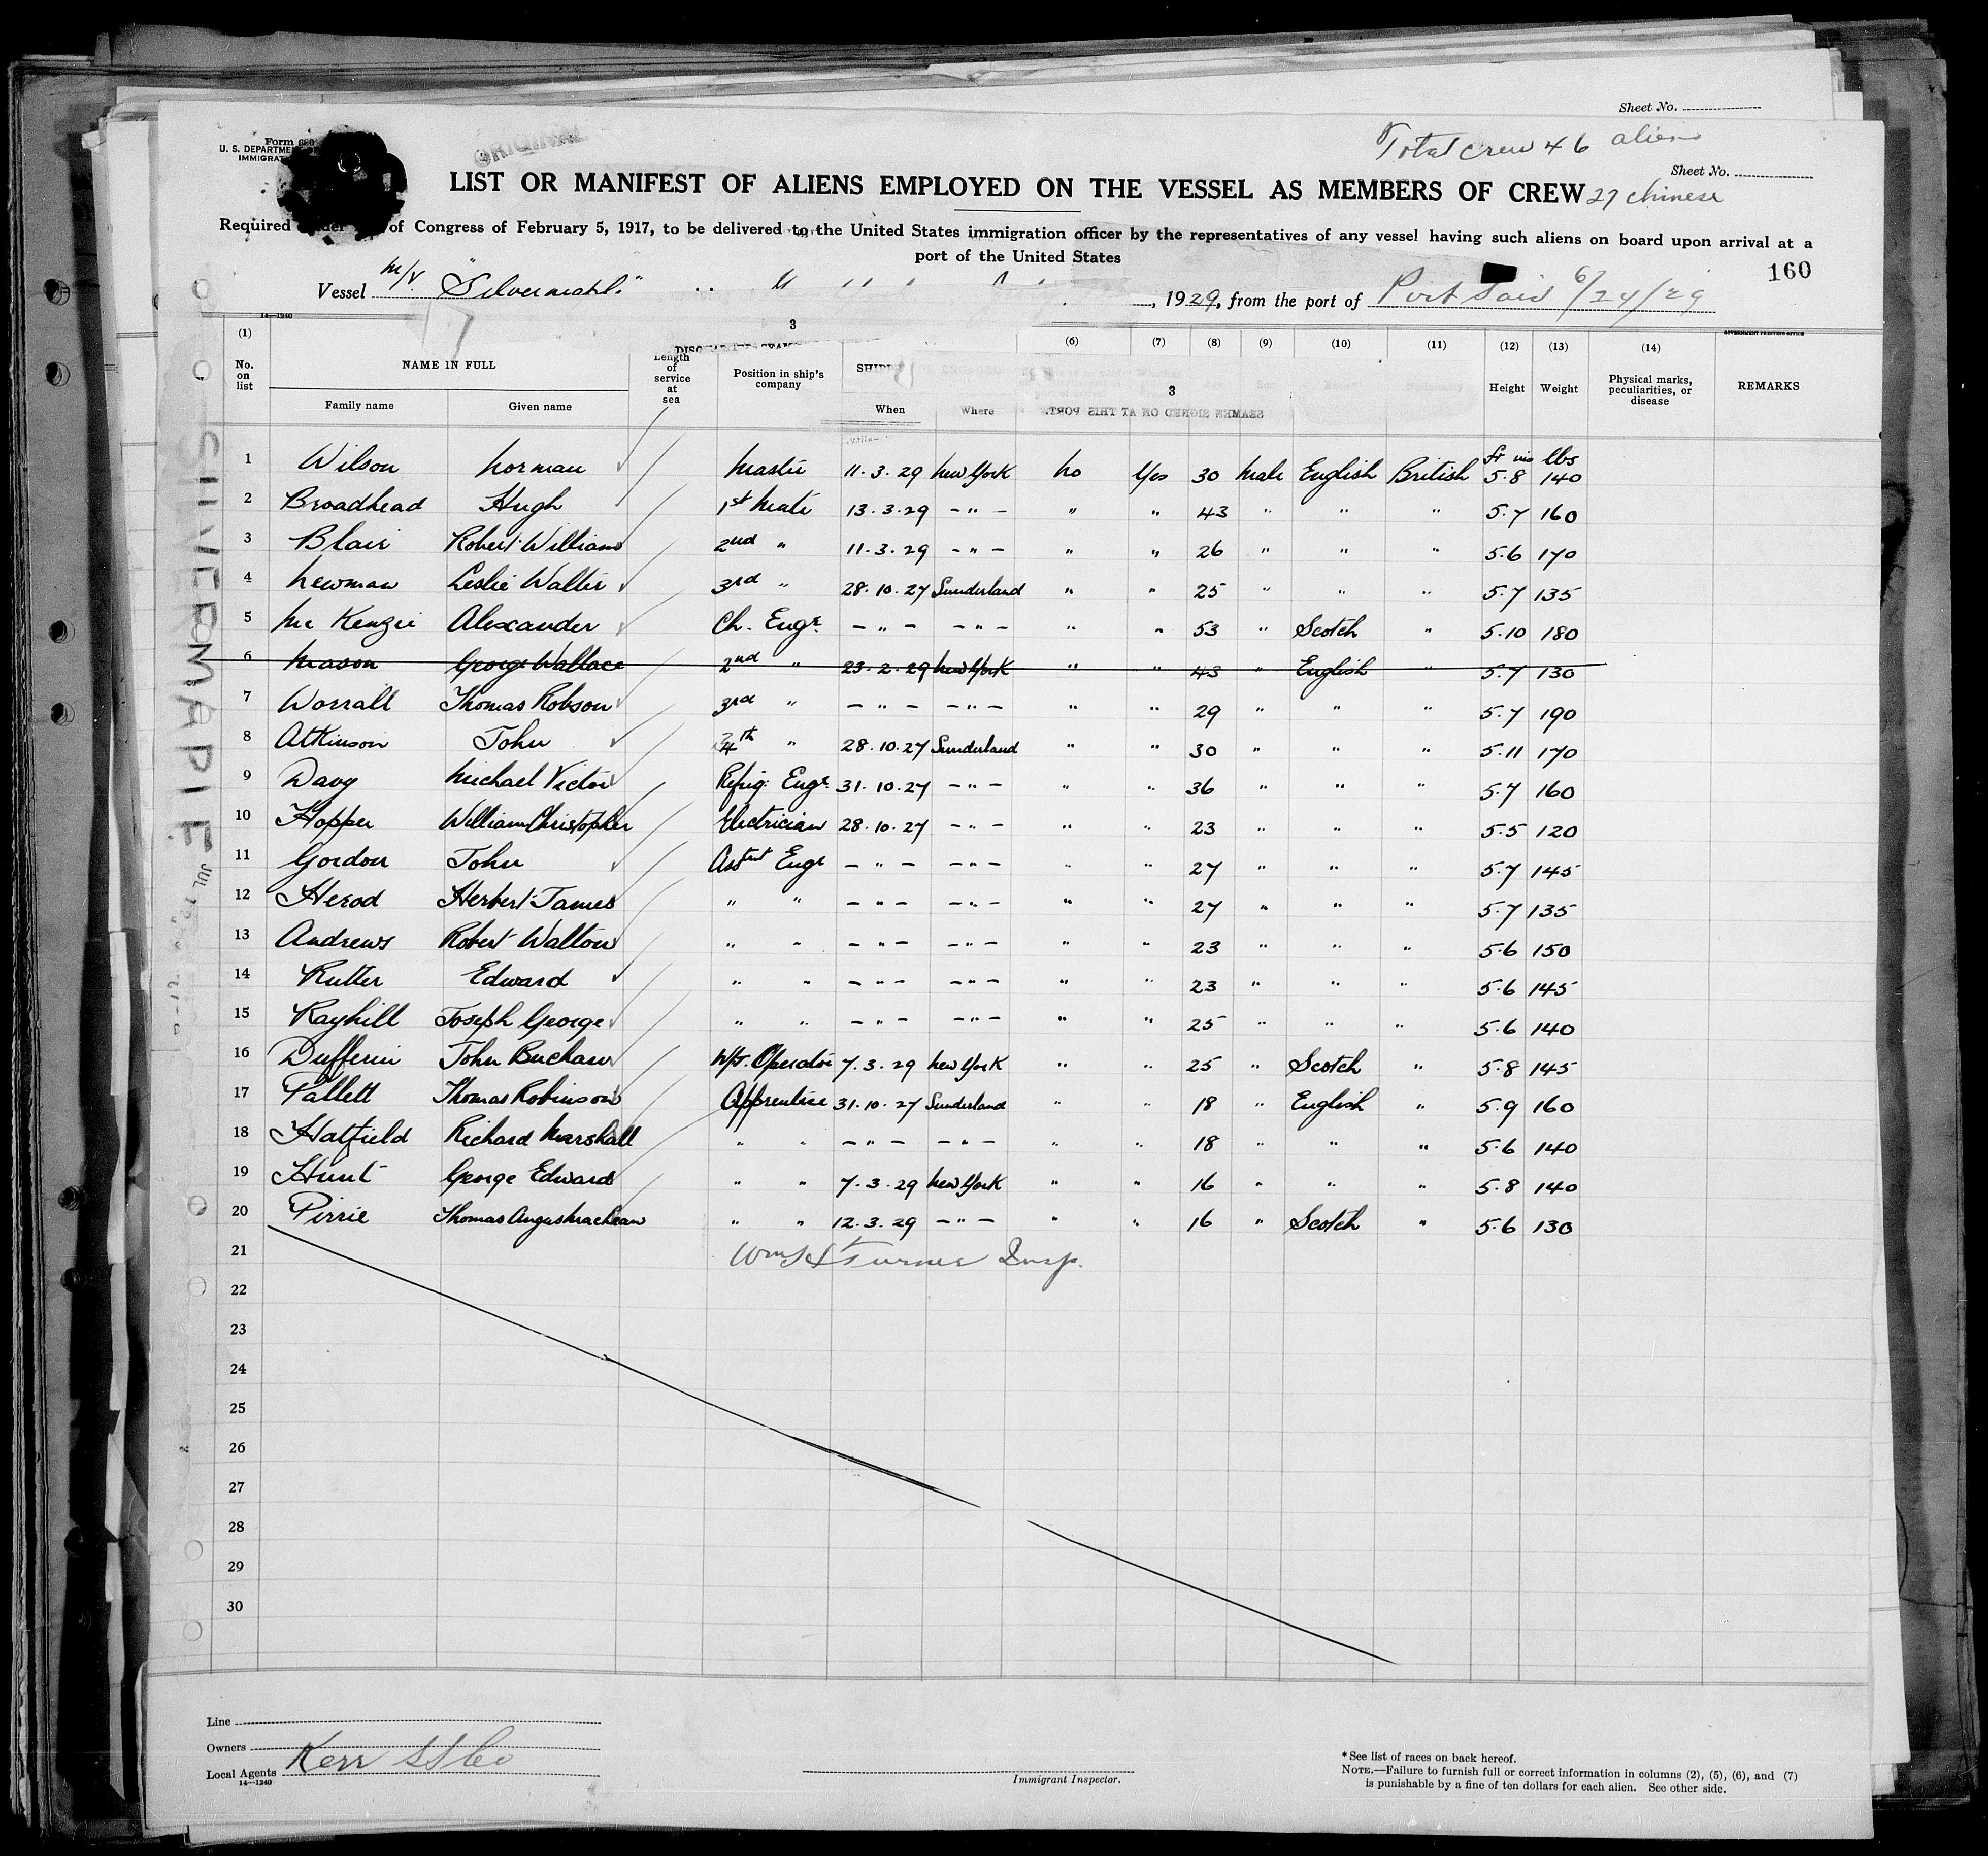 Sheet No.
Total crew 46 aliens
Form 680
U. S. DEPARTMENT
IMMIGRAT
ORIGINAL
Sheet No.
LIST OR MANIFEST OF ALIENS EMPLOYED ON THE VESSEL AS MEMBERS OF CREW 27 Chinese
Required under of Congress of February 5, 1917, to be delivered to the United States immigration officer by the representatives of any vessel having such aliens on board upon arrival at a
port of the United States
160
Vessel M/V "Silvermaple" , 1929, from the port of Port Said 6/24/29
14—1240
3
GOVERNMENT PRINTING OFFICE
(1) (6) (7) (8) (9) (10) (11) (12) (13) (14)
No. on list NAME IN FULL Length of service at sea Position in ship's company Height Weight Physical marks, peculiarities, or disease REMARKS
3
Family name Given name When Where
SEAMEN SIGNED ON AT THIS PORT.
ft ins lbs
1 Wilson Norman Master 11.3.29 New York No Yes 30 Male English British 5.8 140
2 Broadhead Hugh 1st Mate 13.3.29 - " - " " 43 " " " 5.7 160
3 Blair Robert William 2nd " 11.3.29 - " - " " 26 " " " 5.6 170
4 Newman Leslie Walter 3rd " 28.10.27 Sunderland " " 25 " " " 5.7 135
5 McKenzie Alexander Ch. Engr. - " - - " - " " 53 " Scotch " 5.10 180
6 Mason George Wallace 2nd " 23.2.29 New York " " 43 " English " 5.7 130
7 Worrall Thomas Robson 3rd " - " - - " - " " 29 " " " 5.7 190
8 Atkinson John 4th " 28.10.27 Sunderland " " 30 " " " 5.11 170
9 Davy Michael Victor Refrig. Engr. 31.10.27 - " - " " 36 " " " 5.7 160
10 Hopper William Christopher Electrician 28.10.27 - " - " " 23 " " " 5.5 120
11 Gordon John Asstnt Engr - " - - " - " " 27 " " " 5.7 145
12 Herod Herbert James " " - " - - " - " " 27 " " " 5.7 135
13 Andrews Robert Walton " " - " - - " - " " 23 " " " 5.6 150
14 Rutter Edward " " - " - - " - " " 23 " " " 5.6 145
15 Rayhill Joseph George " " - " - - " - " " 25 " " " 5.6 140
16 Dufferin John Buchan W/T. Operator 7.3.29 New York " " 25 " Scotch " 5.8 145
17 Pallett Thomas Robinson Apprentice 31.10.27 Sunderland " " 18 " English " 5.9 160
18 Hatfield Richard Marshall " " - " - - " - " " 18 " " " 5.6 140
19 Hunt George Edward " " 7.3.29 New York " " 16 " " " 5.8 140
20 Pirrie Thomas Angus Maclean " " 12.3.29 - " - " " 16 " Scotch " 5.6 130
21 Wm H Turner Insp.
22
23
24
25
26
27
28
29
30
SILVERMAPLE
JUL 12
Line
Owners
Local Agents Kerr SS Co
14—1240
Immigrant Inspector.
* See list of races on back hereof.
NOTE.—Failure to furnish full or correct information in columns (2), (5), (6), and (7)
is punishable by a fine of ten dollars for each alien. See other side.